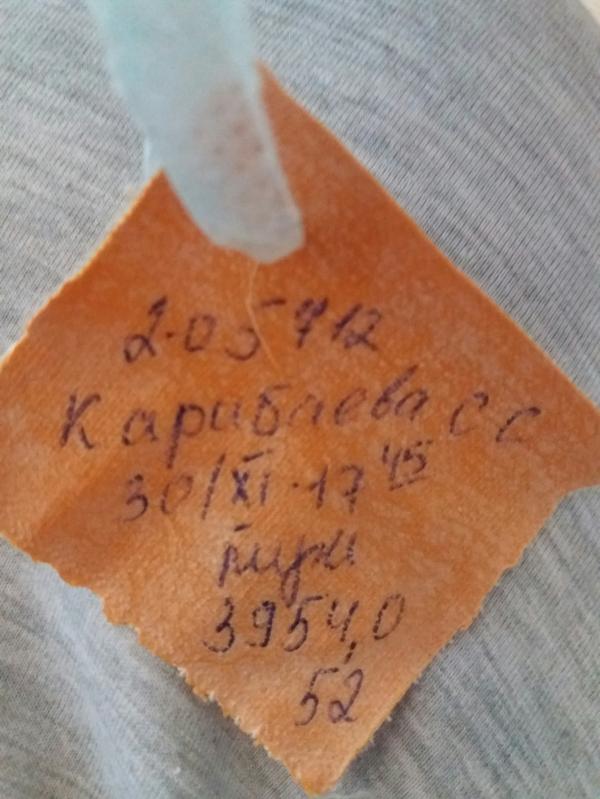 2.05712
Карибаева С С
30/XI. 17 45
3954,0
52